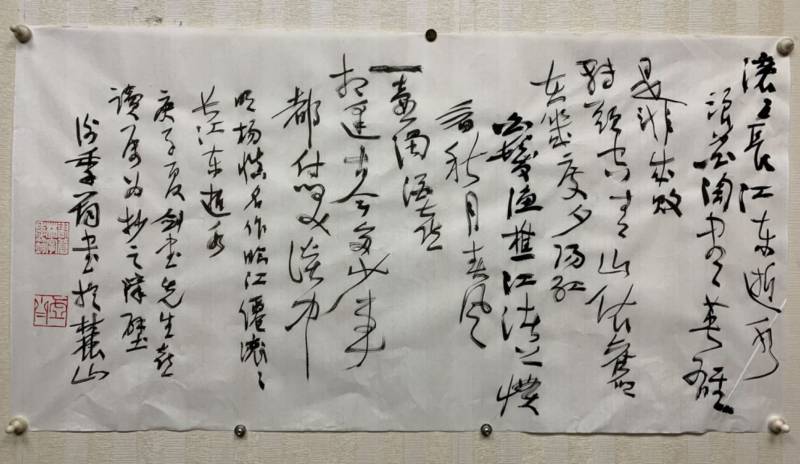 滚々長江东逝水
浪花淘尽英雄
是非成败
转头空青山依舊
在几度夕阳红
白髮渔樵江渚上惯
看秋月春风
一壶浊酒喜
相逢古今多少事
都付笑谈中
明杨慎名作临江僊滚々
长江东逝水
庚子夏剑书先生喜
读属为抄之障壁
季雨书於麓山